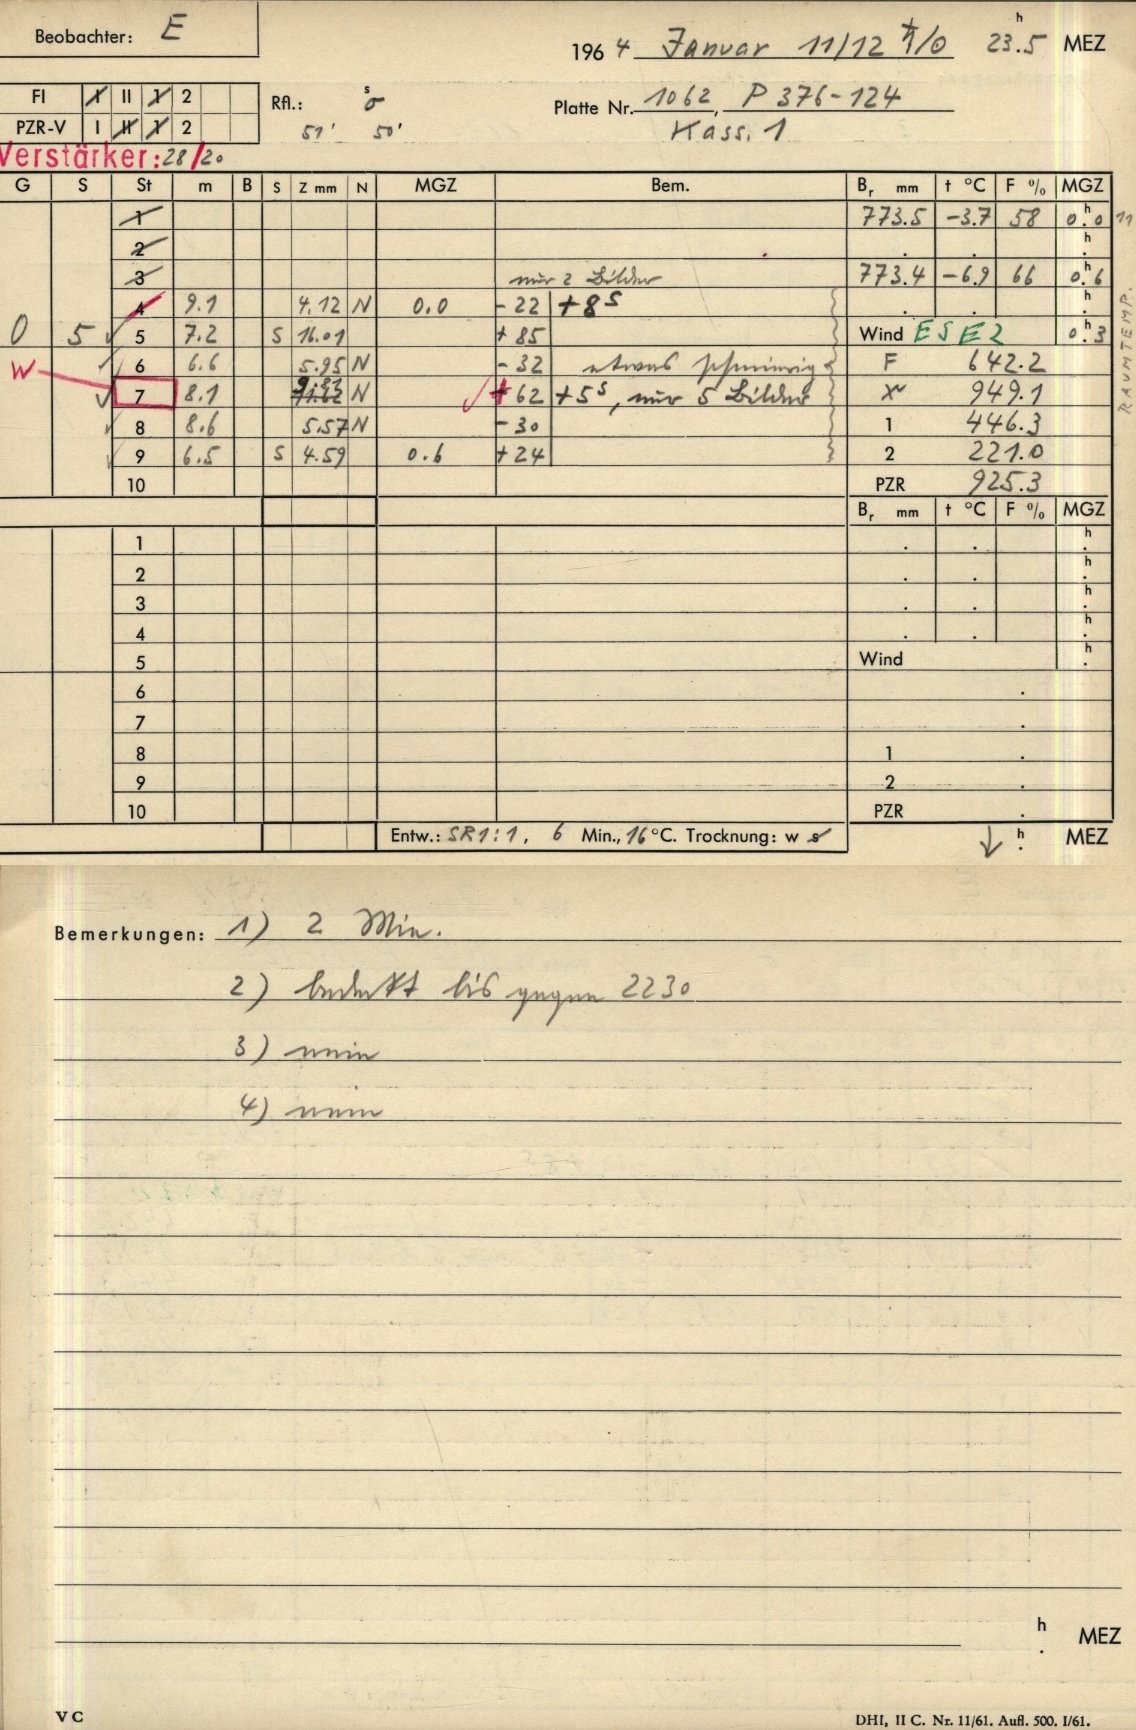 Beobachter: E
1964 Januar 11/12 ♄/0 23.5 h MEZ
FI I II 1 2
Rfl.: s σ
Platte Nr. 1062, P 376-124
PZR-V I II 1 2
51' 50'
Kass. 1
Verstärker: 28/20
G S St m B S Z mm N MGZ Bem. Br mm t °C F % MGZ
1 773.5 -3.7 58 0.0 h 11
2 . . h .
3 nur 2 Bilder 773.4 -6.9 66 0.6 h
4 9.1 4.12 N 0.0 -22 +8 s . . h .
0 5 5 7.2 S 16.01 +85 Wind ESE2 0.3 h
6 6.6 5.95 N -32 etwas schmierig F 642.2
W 7 8.1 9.83 11.62 N +62 +5 s, nur 5 Bilder X 949.1
8 8.6 5.57 N -30 1 446.3
9 6.5 S 4.59 0.6 +24 2 221.0
10 PZR 925.3
RAUMTEMP.
Br mm t °C F % MGZ
1 . . h .
2 . . h .
3 . . h .
4 . . h .
5 Wind h .
6 .
7 .
8 1 .
9 2 .
10 PZR .
Entw.: SR1:1, 6 Min., 16 °C. Trocknung: w s
↓ h . MEZ
Bemerkungen: 1) 2 Min.
2) bedeckt bis gegen 2230
3) nein
4) nein
h . MEZ
V C
DHI, II C. Nr. 11/61. Aufl. 500. I/61.